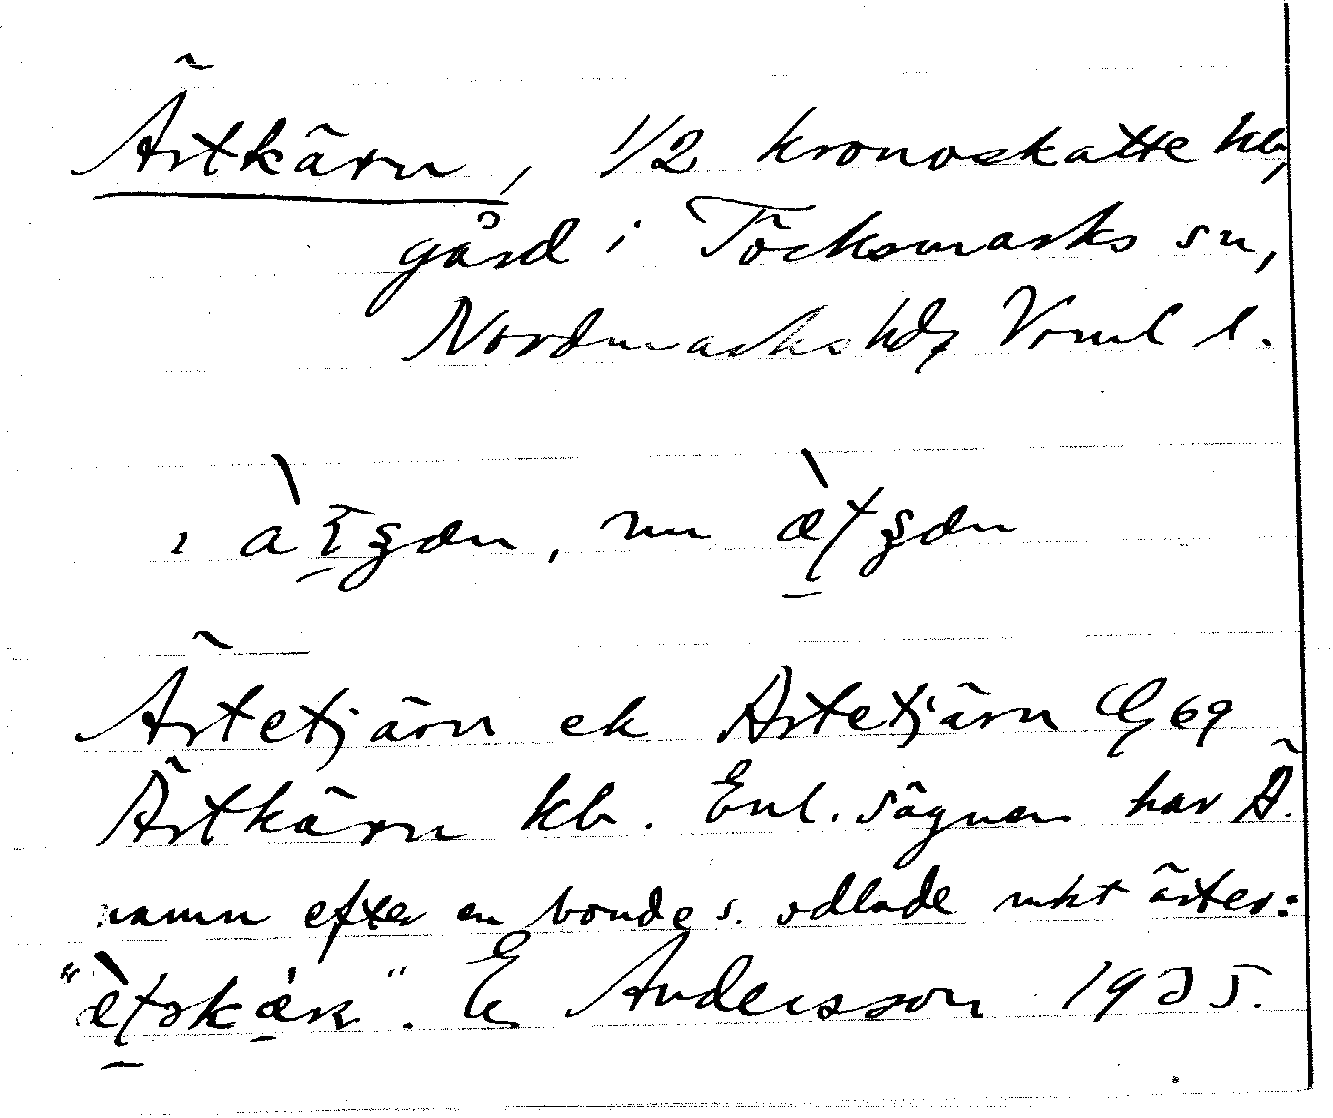 Ärtkärn, 1/2 kronoskatte hb,
gård i Töcksmarks sn,
Nordmarks hd, Verml l.
nu
Ärtetjärn ek Ärtetjärn G69
Ärtkärn kb. Enl. sägnen har Ä.
namn efter en bonde s. odlade mkt ärter:
E Andersson 1935.